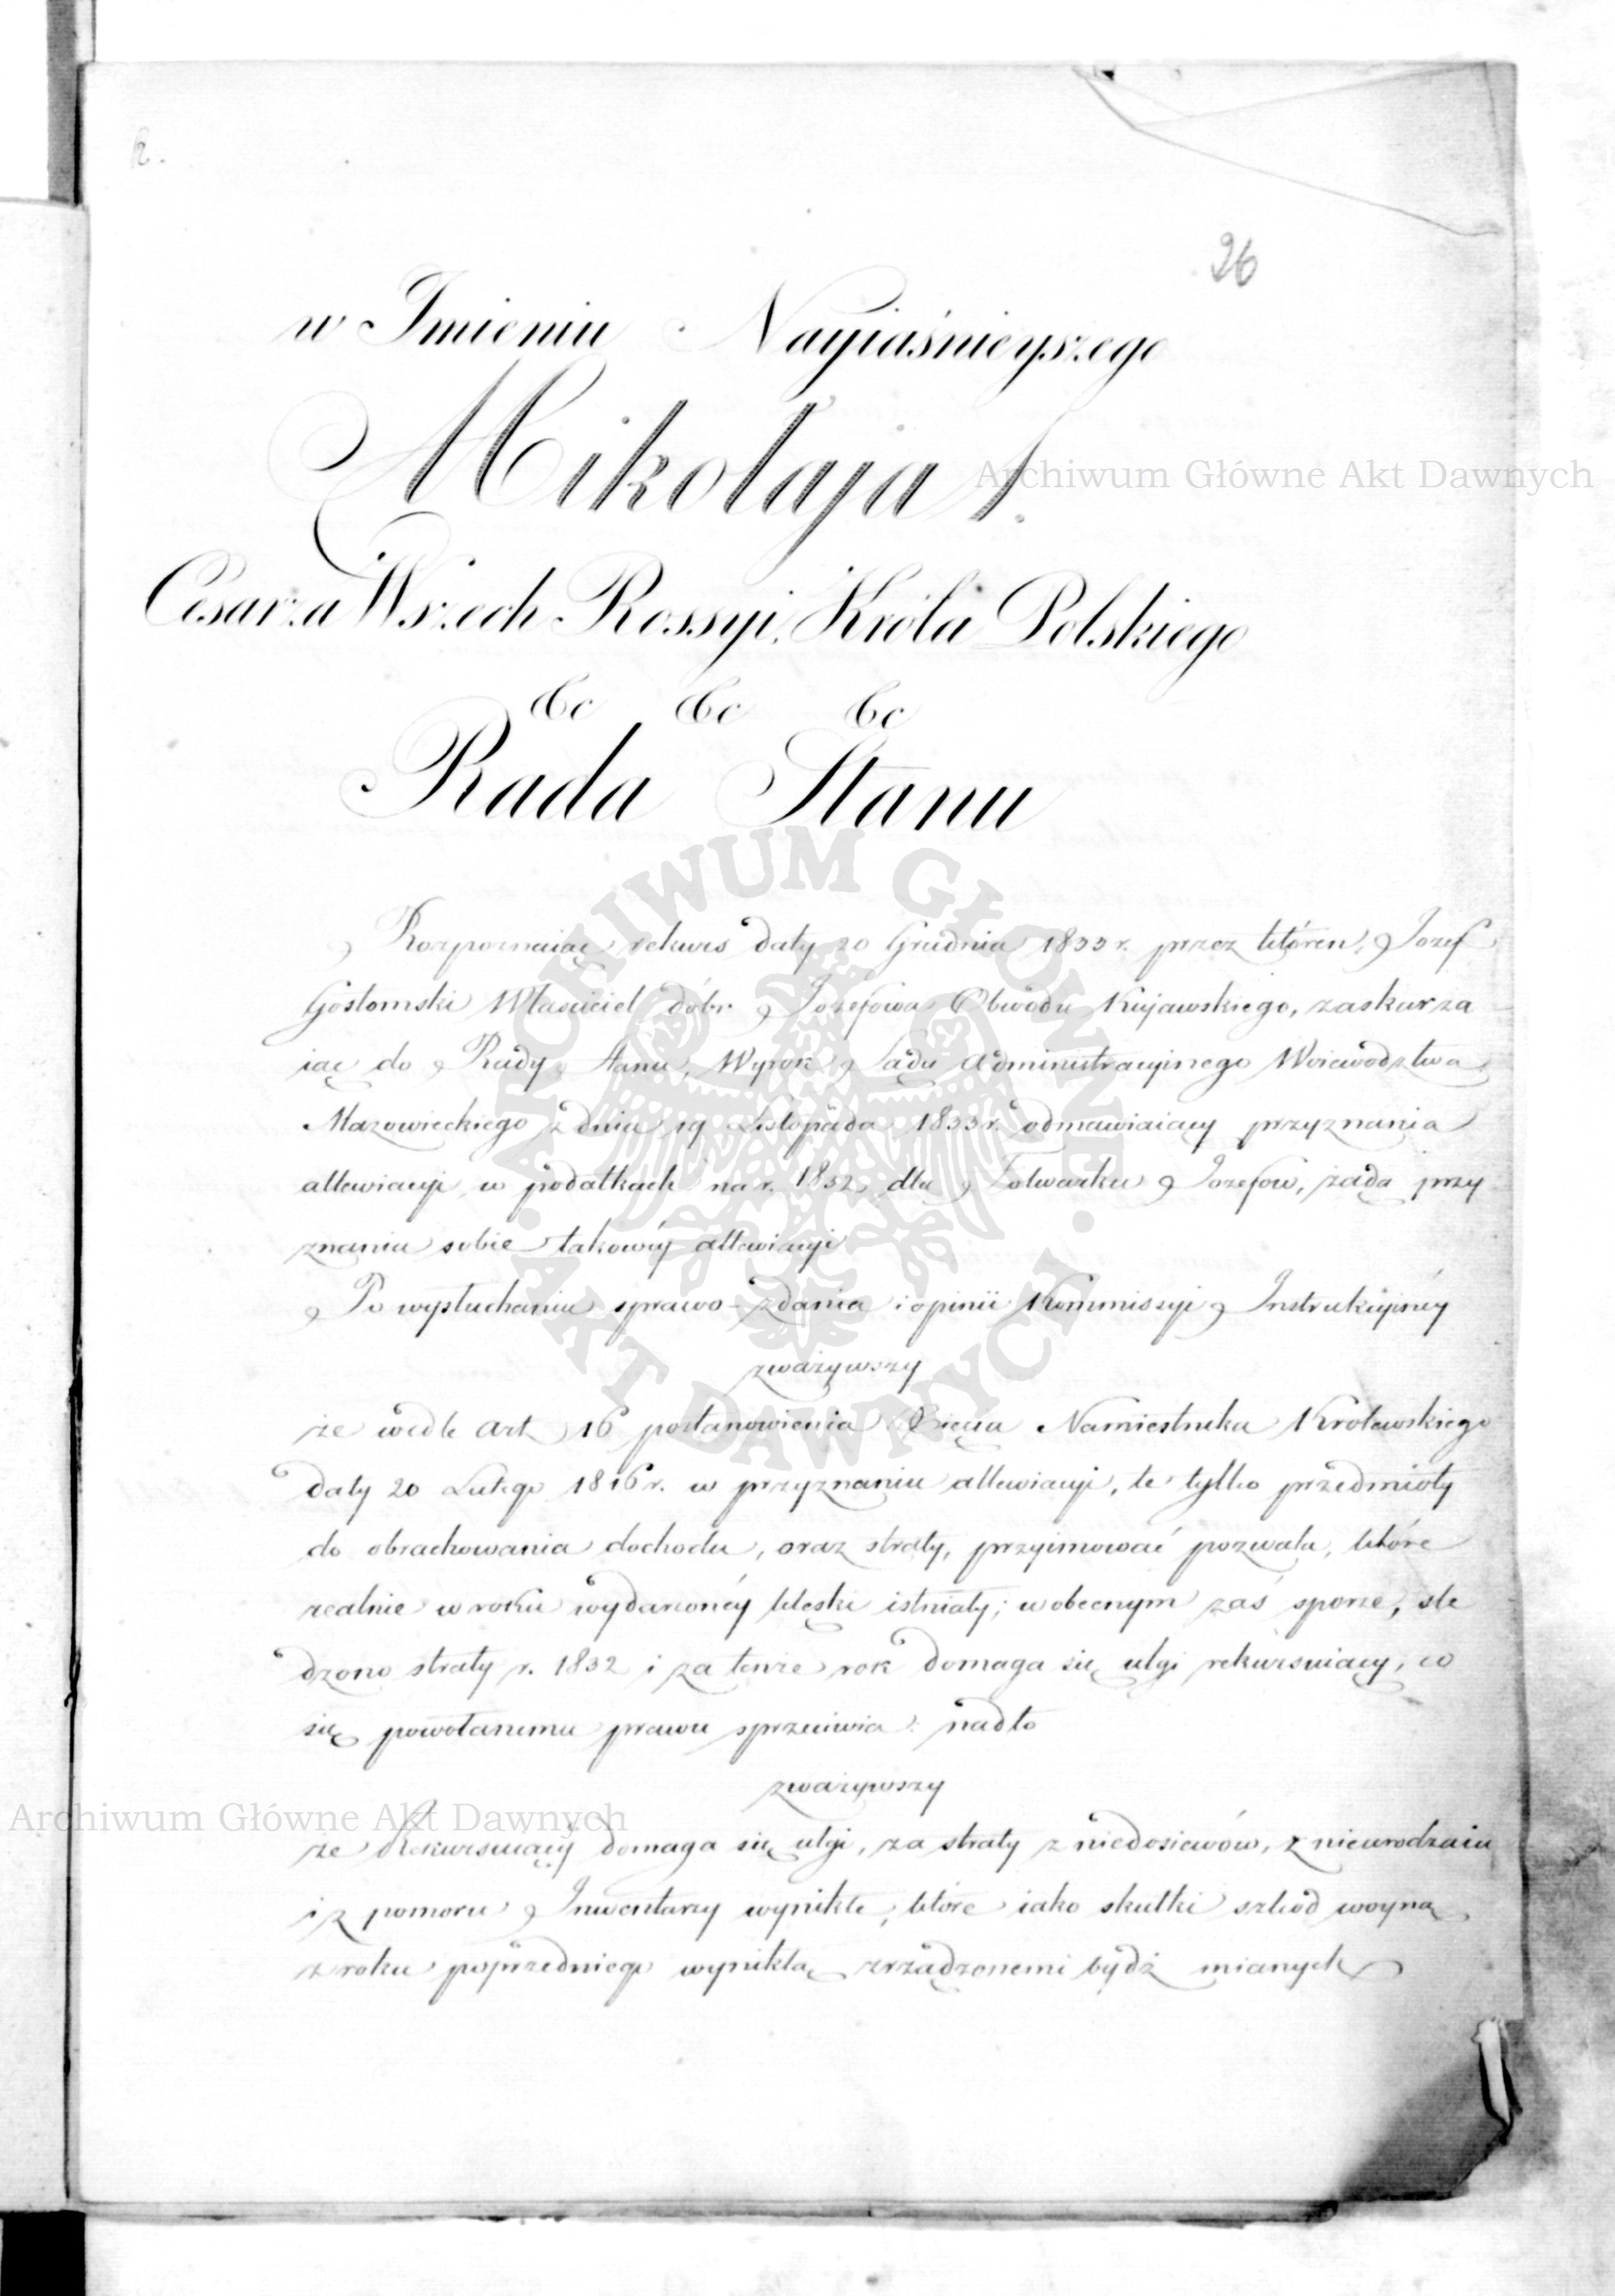 26
w Imieniu Nayiaśnieyszego
Mikołaja I.
Cesarza Wszech Rossyi, Króla Polskiego
&c &c &c
Rada Stanu
Rozpoznaiąc rekurs daty 20 Grudnia 1833 r. przez który Jozef
Gostomski Właściciel dóbr Józefowa Obwodu Kujawskiego, zaskarza
iąc do Rady Stanu, Wyrok Sądu Administracyjnego Woiewodztwa
Mazowieckiego z dnia 19 Listopada 1833 r. odmawiaiący przyznania
allewiacyi w podatkach na r. 1832 dla Folwarku Jozefow, żąda przy
znania sobie takowéy allewiacyi
Po wysłuchaniu sprawo-zdania i opinii Kommissyi Instrukcyinéy
zważywszy
że wedle Art 16 postanowienia Xięcia Namiestnika Krolewskiego
daty 20 Lutego 1816 r. w przyznaniu allewiacyi, te tylko przedmioty
do obrachowania dochodu, oraz straty, przyimować pozwala, które
realnie w roku wydarzonéy klęski istniały; w obecnym zaś sporze, śle
dzono straty r. 1832 i za tenże rok domaga się ulgi rekursuiący, co
się powołanemu prawu sprzeciwia: nadto
zważywszy
że Rekursuiący domaga się ulgi, za straty z niedosiewów, z nieurodzaiu
i z pomoru Inwentarzy wynikłe, które iako skutki szkód woyną
z roku poprzedniego wynikłą zrządzonemi bydź mianych
Archiwum Główne Akt Dawnych
Archiwum Główne Akt Dawnych
ARCHIWUM GŁÓWNE · AKT DAWNYCH ·